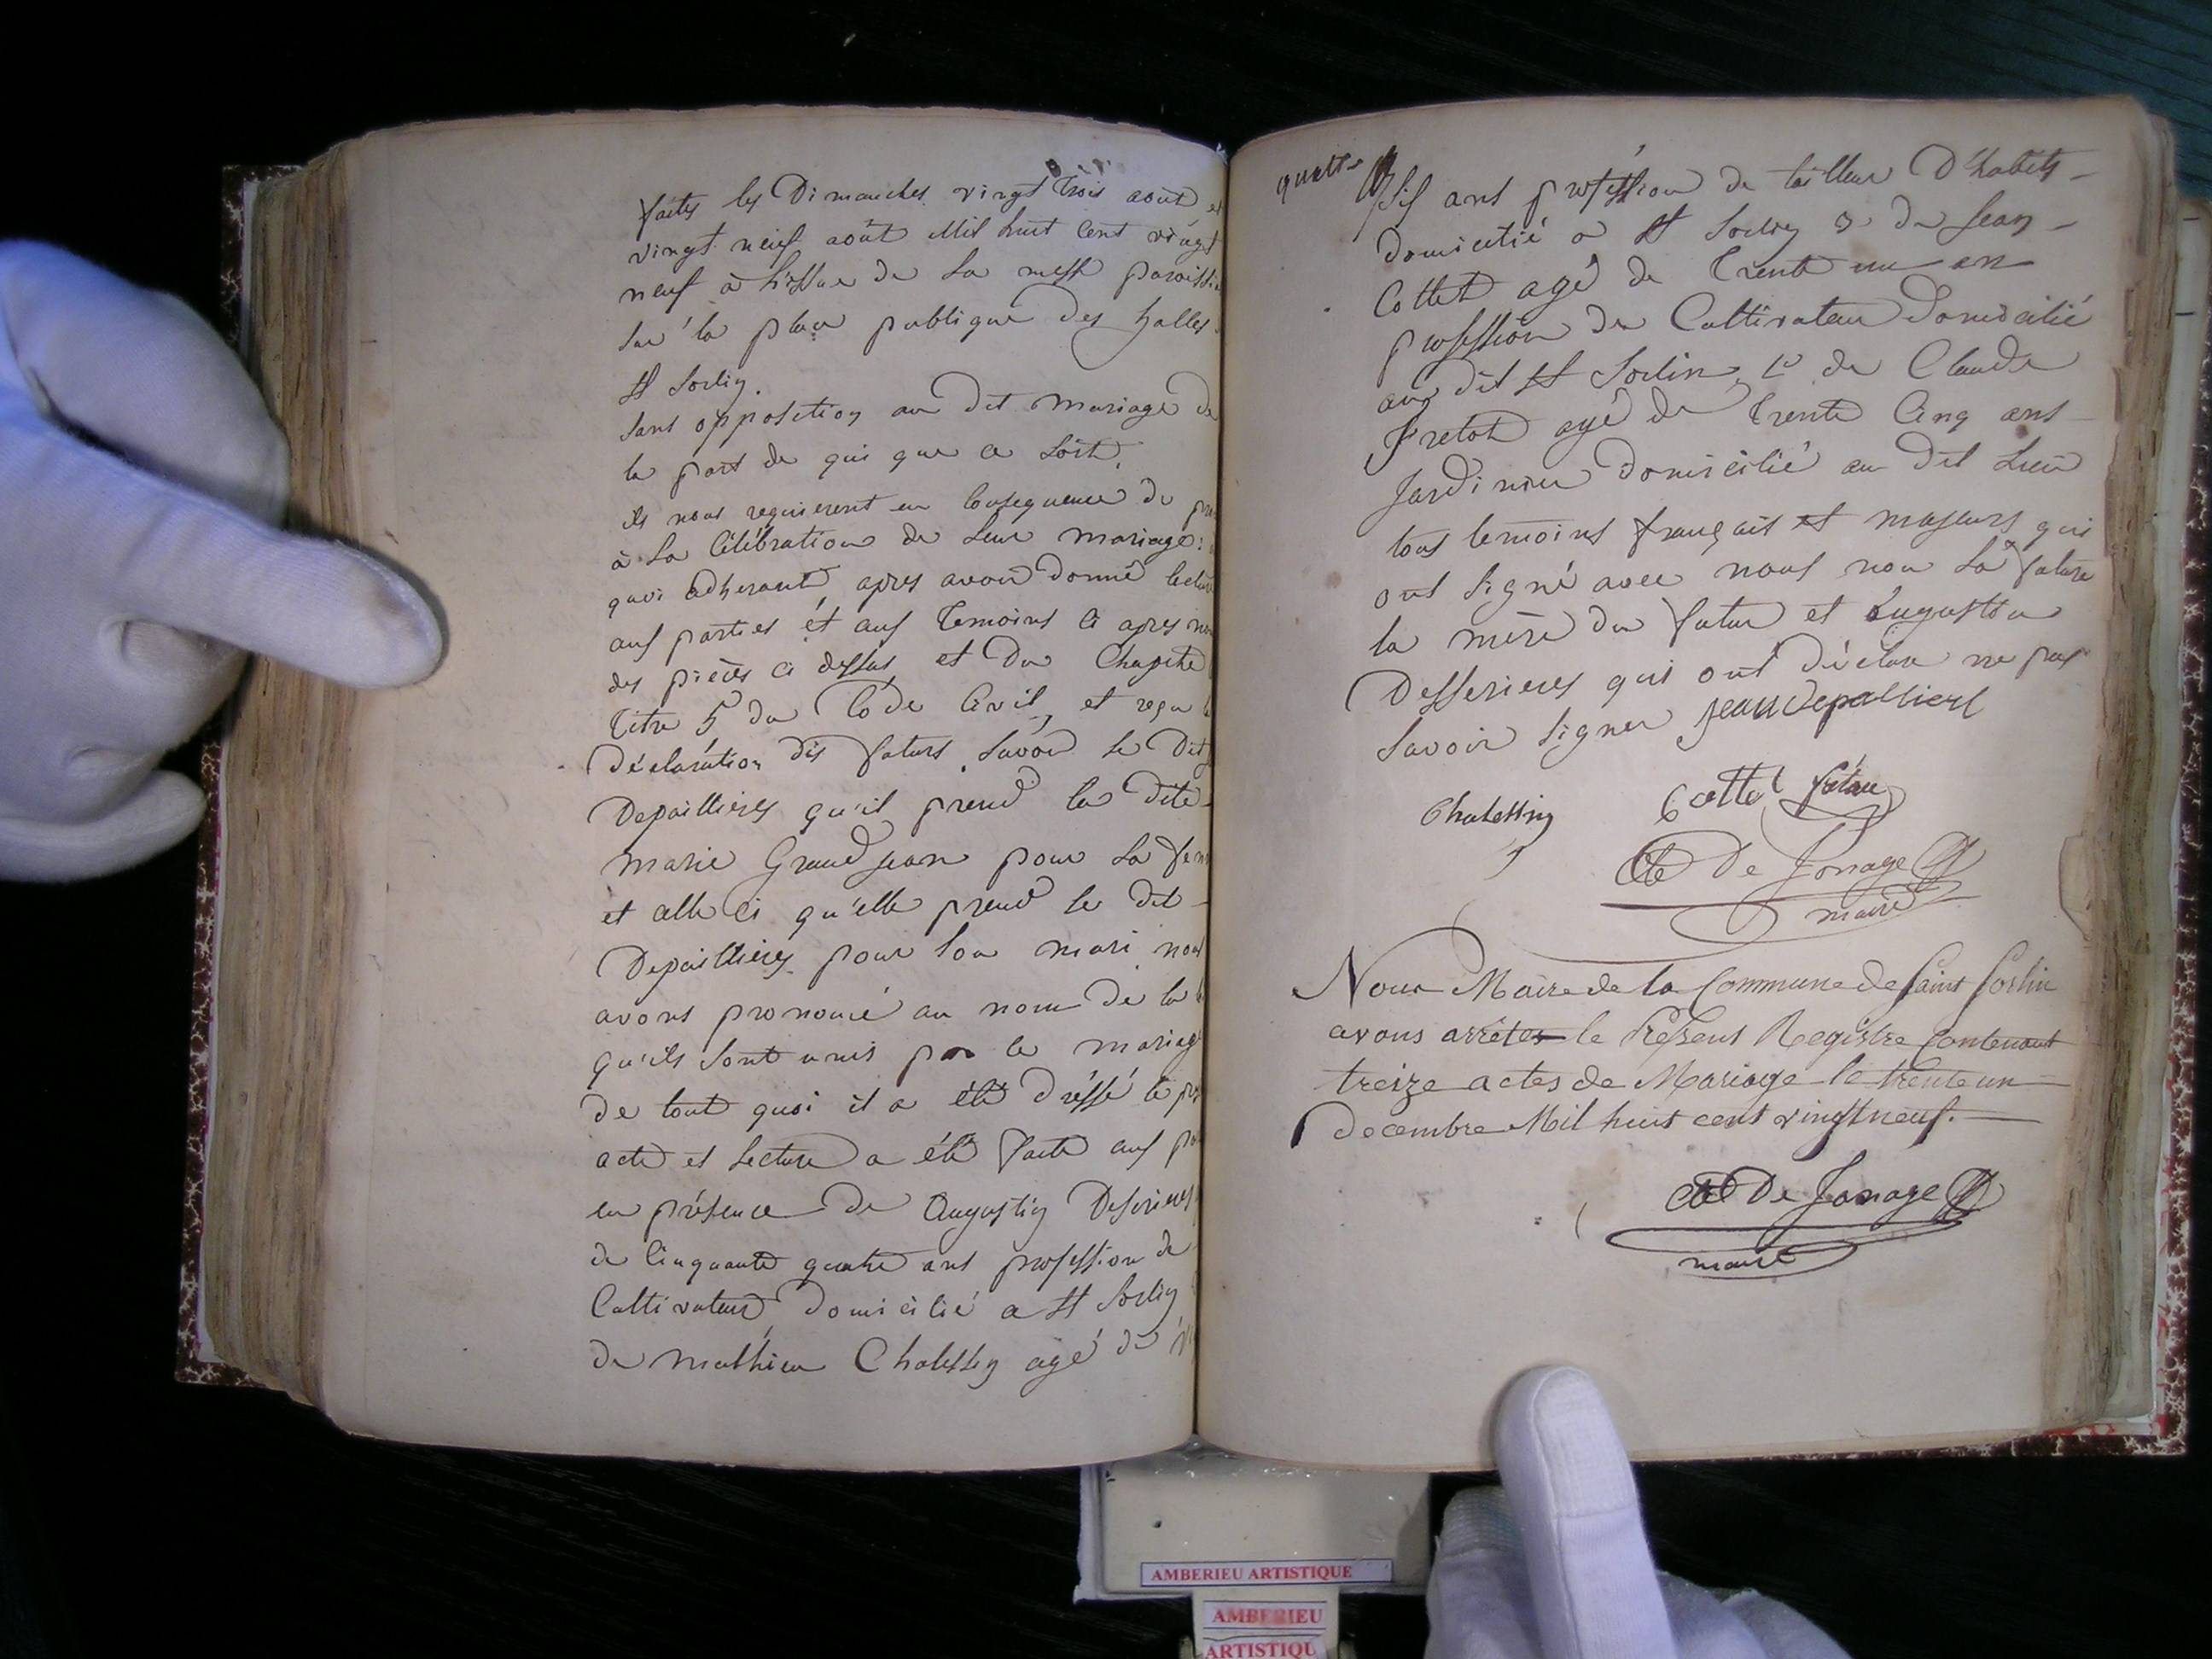 faites les Dimanches vingt trois août et
vingt neuf août Mil huit Cent vingt
neuf à l'issue de la messe paroissi
sur la place publique des halles
St Sorlin.
sans opposition au dit mariage de
la part de qui que ce soit.
ils nous requierent en Consequence de pro
à la Célébration de leur mariage:
quoi adherant, apres avoir donné lectur
aux parties et aux temoins ci apres no
des pièces ci dessus et du Chapitre
titre 5 du Côde Civil, et reçu l
Déclaration des futurs, savoir le Dit
Depaillieres qu'il prend la dite
marie Grandjean pour sa fem
et celle ci qu'elle prend le dit
Depaillieres pour son mari nous
avons prononcé au nom de la l
qu'ils sont unis par le mariage
de tout quoi il a été dréssé le pr
acte et lecture a été faite aux pa
en présence de Augustin Deserieres
de Cinquante quatre ans profession de
Cultivateur domicilié a St Sorlin
de mathieu Chalessin agé de v
quatre
six ans profession de tailleur D'habits
domicilié a St Sorlin 3 de Jean
Cottet agé de trente un an
profession de Cultivateur domicilié
au dit St Sorlin, de Claude
Fretat agé de trente Cinq ans
Jardinier domicilié au dit lieu
tous temoins français et majeurs qui
ont signé avec nous non la future
la mère du futur et Augustin
Desserieres qui ont déclaré ne pas
savoir signer Jean depallierl
Chalessin
Cottet fétau
Cte De Jonage
maire
Nous Maire de la Commune de Saint Sorlin
avons arrêter le Présent Registre Contenant
treize actes de Mariage le trente un
decembre Mil huit cent vingt neuf.
Cte De Jonage
maire
AMBERIEU ARTISTIQUE
AMBERIEU
ARTISTIQU